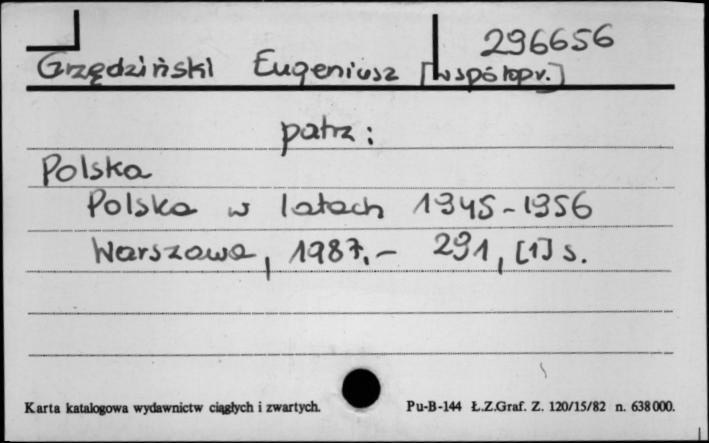 296656
Grzędziński Eugeniusz [współopr.]
patrz:
Polska
Polska w latach 1945-1956
Warszawa, 1987.- 291, [1] s.
Karta katalogowa wydawnictw ciągłych i zwartych. Pu-B-144 Ł.Z.Graf. Z. 120/15/82 n. 638000.